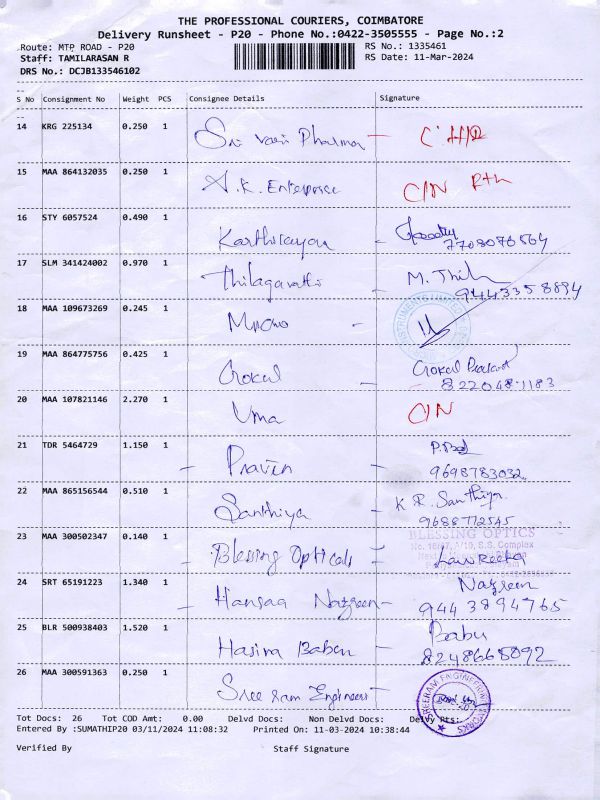 THE PROFESSIONAL COURIERS, COIMBATORE
Delivery Runsheet - P20 - Phone No.:0422-3505555 - Page No.:2
Route: MTP ROAD - P20
RS No.: 1335461
Staff: TAMILARASAN R
RS Date: 11-Mar-2024
DRS No.: DCJB133546102
S No Consignment No Weight PCS Consignee Details Signature
14 KRG 225134 0.250 1
Sri Vari Pharma -
15 MAA 864132035 0.250 1
A.K. Enterprise C/N
16 STY 6057524 0.490 1
Karthirayan - 7708076564
17 SLM 341424002 0.970 1
Thilagavathi M. Thil
9443358894
18 MAA 109673269 0.245 1
19 MAA 864775756 0.425 1
Gokul Gokul Prasant
8220481183
20 MAA 107821146 2.270 1
Uma C/N
21 TDR 5464729 1.150 1
- Pravin -
9698783032
22 MAA 865156544 0.510 1
Santhiya - K.R. Santhiya
9688772545
BLESSING OPTICS
23 MAA 300502347 0.140 1
S.S. Complex
- Blessing Opticals -
24 SRT 65191223 1.340 1
Nazreen
- Hansaa Nazreen - 9443894765
25 BLR 500938403 1.520 1
Babu
Hasina Baben - 8248668892
26 MAA 300591363 0.250 1
Sree ram Engineers -
SREERAM ENGINEERING WORKS
Tot Docs: 26 Tot COD Amt: 0.00 Delvd Docs: Non Delvd Docs: Delvy Pts:
Entered By :SUMATHIP20 03/11/2024 11:08:32 Printed On: 11-03-2024 10:38:44
Verified By Staff Signature